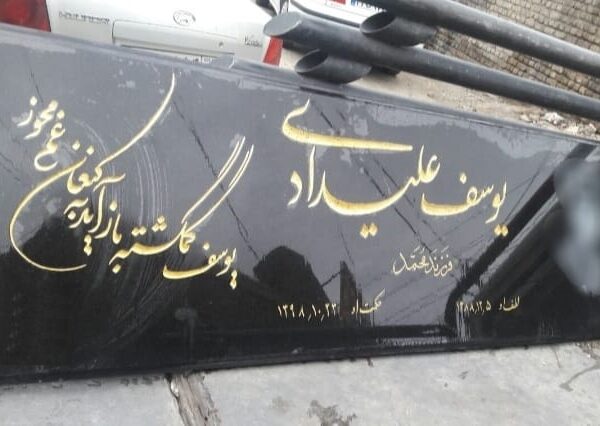 یوسف علیدادی
فرزند محمد
۱۳۸۸٫۱۲٫۵
۱۳۹۸٫۱۰٫۲۳
یوسف گمگشته باز آید به کنعان غم مخور